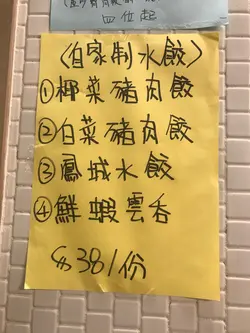 四位起
(自家制水餃)
①椰菜豬肉餃
②白菜豬肉餃
③鳳城水餃
④鮮蝦雲吞
$38/份